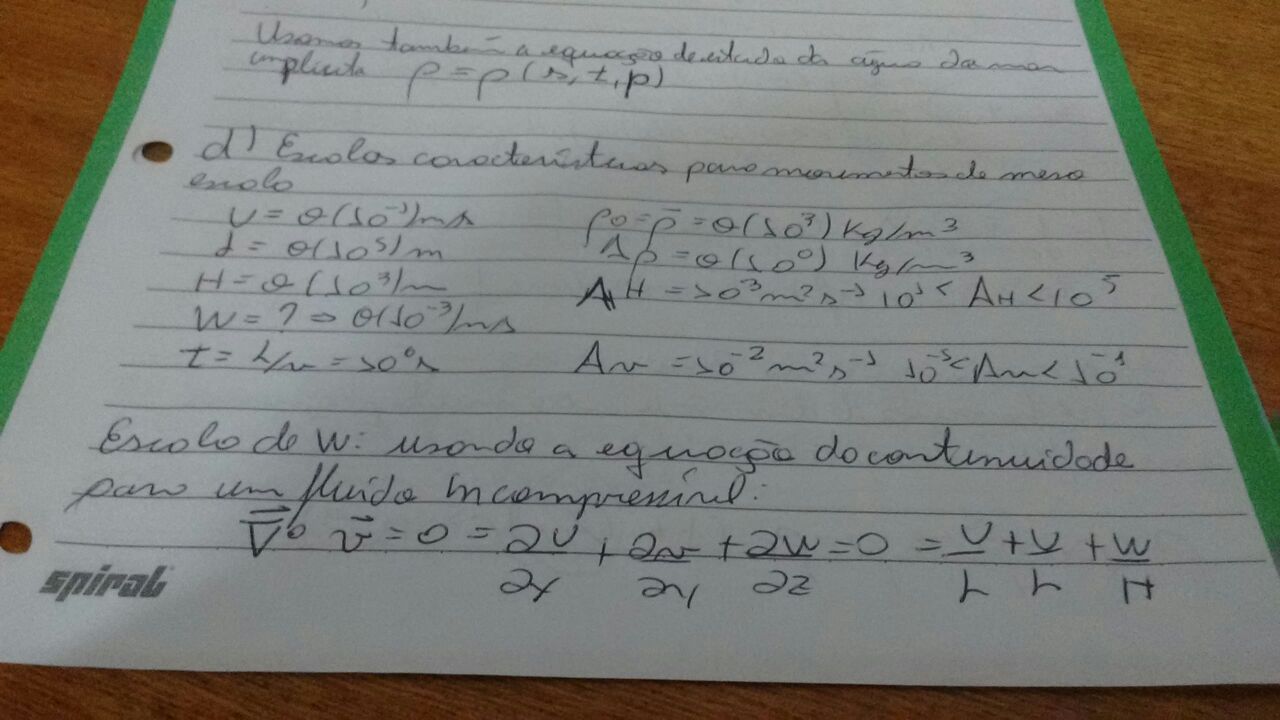 Usamos também a equação de estado da água do mar
implícita ρ = ρ(s, t, p)
d) Escalas características para movimentos de meso
escala
U = O(10⁻¹) m/s ρ₀ = ρ̄ = O(10³) Kg/m³
L = O(10⁵) m Δρ = O(10⁰) Kg/m³
H = O(10³) m AH = 10³ m² s⁻¹ 10¹ < AH < 10⁵
W = ? ⇒ O(10⁻³) m/s
t = L/u = 10⁶ s Av = 10⁻² m² s⁻¹ 10⁻⁵ < Av < 10⁻¹
Escala de W: usando a equação da continuidade
para um fluido incompressível:
∇⃗ ∘ v⃗ = 0 = ∂U/∂x + ∂v/∂y + ∂W/∂z = 0 = U/L + U/L + W/H
spiral